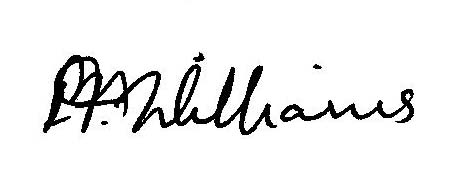 P.A. Williams